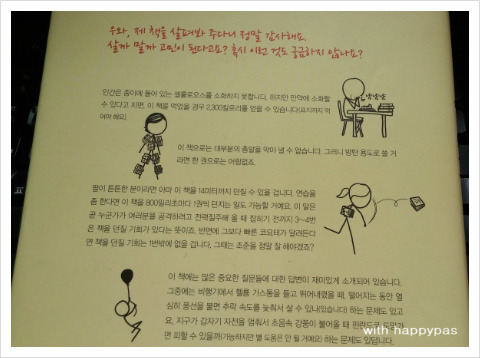 우와, 제 책을 살펴봐 주다니 정말 감사해요.
살까 말까 고민이 된다고요? 혹시 이런 것도 궁금하지 않나요?
인간은 종이에 들어 있는 셀룰로오스를 소화하지 못합니다. 하지만 만약에 소화할
수 있다고 치면, 이 책을 먹었을 경우 2,300칼로리를 얻을 수 있습니다(표지까지 먹
어야 해요).
냠냠냠
이 책으로는 대부분의 총알을 막아 낼 수 없습니다. 그러니 방탄 용도로 쓸 거
라면 한 권으로는 어림없죠.
팔이 튼튼한 분이라면 아마 이 책을 14미터까지 던질 수 있을 겁니다. 연습을
좀 한다면 이 책을 800밀리초마다 1권씩 던지는 일도 가능할 거예요. 이 말은
곧 누군가가 여러분을 공격하려고 전력질주해 올 때 잡히기 전까지 3~4번
은 책을 던질 기회가 있다는 뜻이죠. 반면에 그보다 빠른 코요테가 달려든다
면 책을 던질 기회는 1번밖에 없을 겁니다. 그때는 조준을 정말 잘 해야겠죠?
이 책에는 많은 중요한 질문들에 대한 답변이 재미있게 소개되어 있습니다.
그중에는 비행기에서 헬륨 가스통을 들고 뛰어내렸을 때, 떨어지는 동안 열
심히 풍선을 불면 추락 속도를 늦춰서 살 수 있나(있습니다!) 하는 문제도 있고
요, 지구가 갑자기 자전을 멈춰서 초음속 강풍이 불어올 때 핀란드로 도망가
면 피할 수 있을까(가능하지만 별 도움은 안 될 거예요) 하는 문제도 있답니다.
with happypas